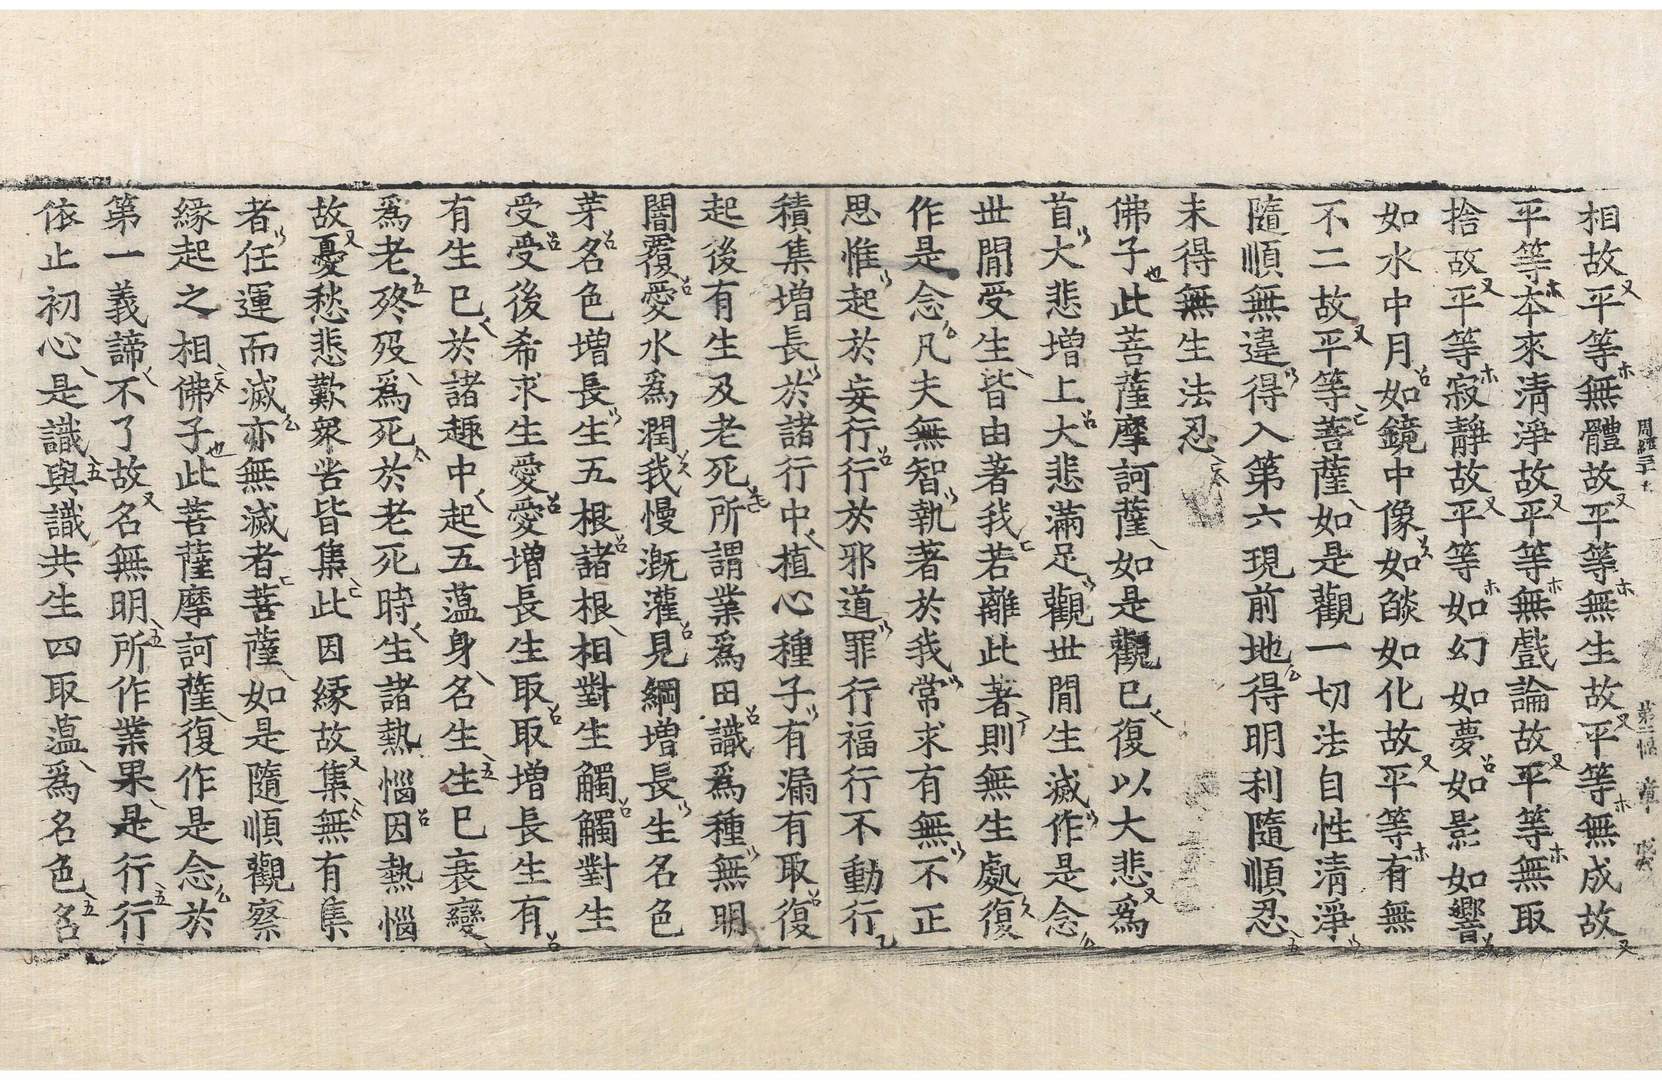 相故平等無體故平等無生故平等無成故
平等本來清淨故平等無戲論故平等無取
捨故平等寂靜故平等如幻如夢如影如響
如水中月如鏡中像如焰如化故平等有無
不二故平等菩薩如是觀一切法自性清淨
隨順無違得入第六現前地得明利隨順忍
未得無生法忍
佛子此菩薩摩訶薩如是觀已復以大悲爲
首大悲增上大悲滿足觀世間生滅作是念
世間受生皆由著我若離此著則無生處復
作是念凡夫無智執著於我常求有無不正
思惟起於妄行行於邪道罪行福行不動行
積集增長於諸行中植心種子有漏有取復
起後有生及老死所謂業爲田識爲種無明
闇覆愛水爲潤我慢漑灌見網增長生名色
芽名色增長生五根諸根相對生觸觸對生
受受後希求生愛愛增長生取取增長生有
有生已於諸趣中起五蘊身名生生已衰變
爲老終歿爲死於老死時生諸熱惱因熱惱
故憂愁悲歎衆苦皆集此因緣故集無有集
者任運而滅亦無滅者菩薩如是隨順觀察
緣起之相佛子此菩薩摩訶薩復作是念於
第一義諦不了故名無明所作業果是行行
依止初心是識與識共生四取蘊爲名色名